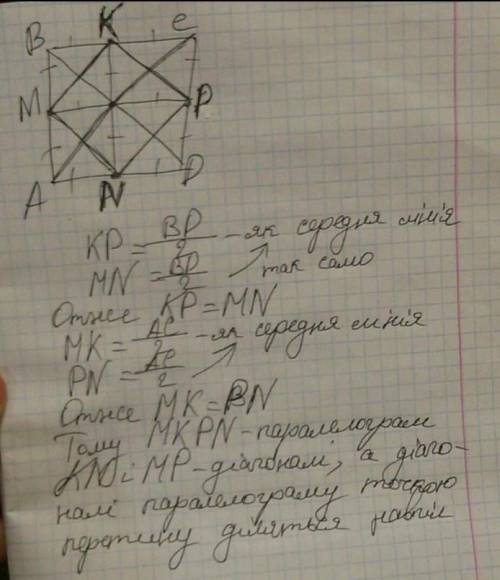 B K C
M P
A N D
KP = BD/2 - як середня лінія
MN = BD/2 так само
Отже KP = MN
MK = AC/2 - як середня лінія
PN = AC/2
Отже MK = PN
Тому MKPN - паралелограм
KN і MP - діагоналі, а діаго-
налі паралелограму точкою
перетину діляться навпіл